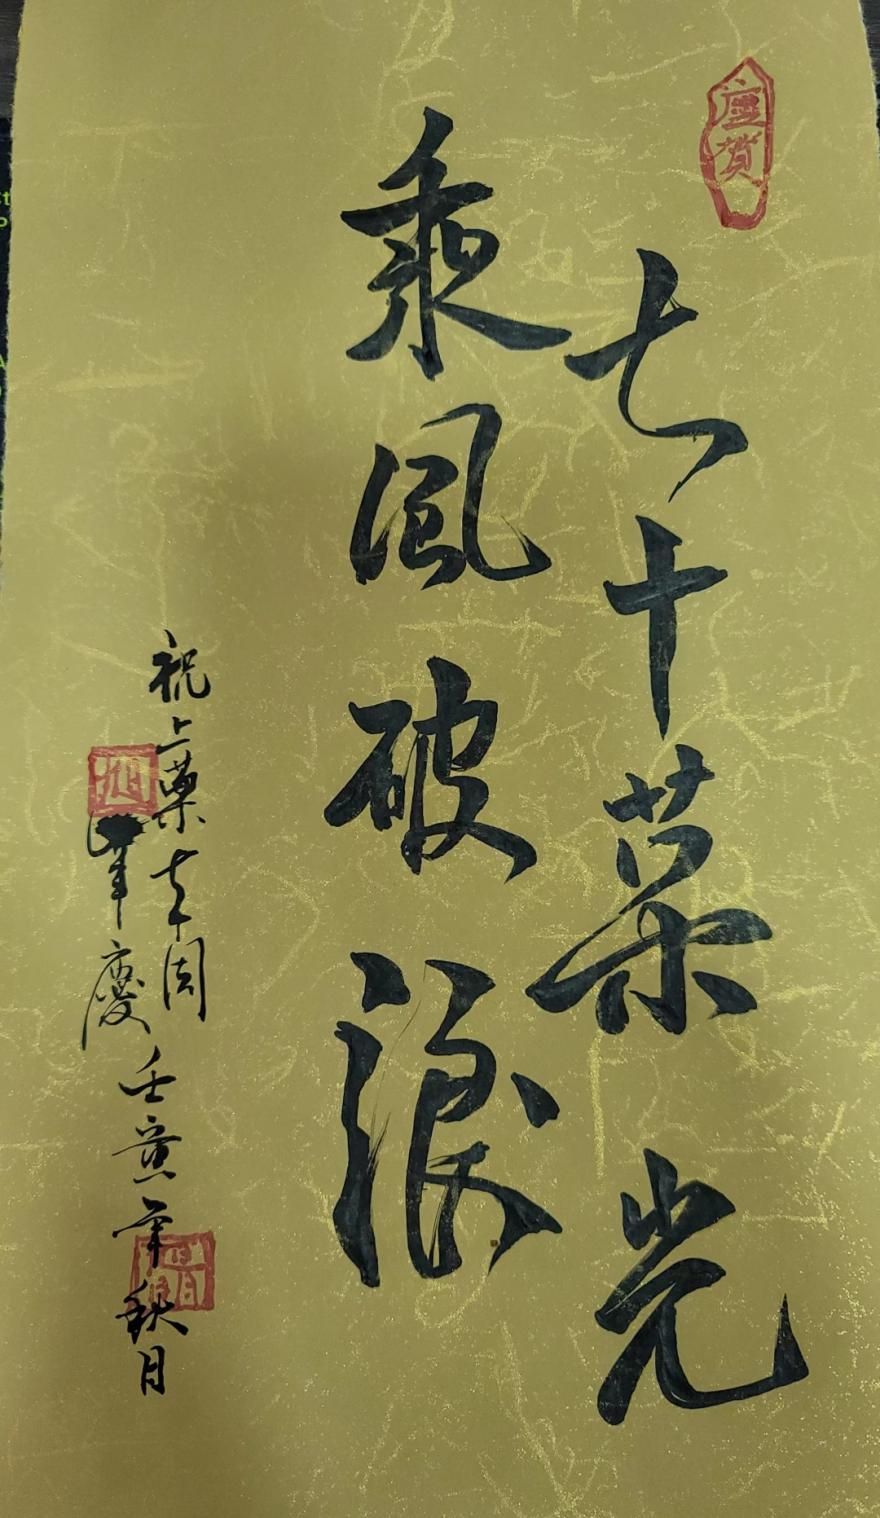 慶賀
七十荣光
乘風破浪
祝上藥七十周
年慶
壬寅年秋月